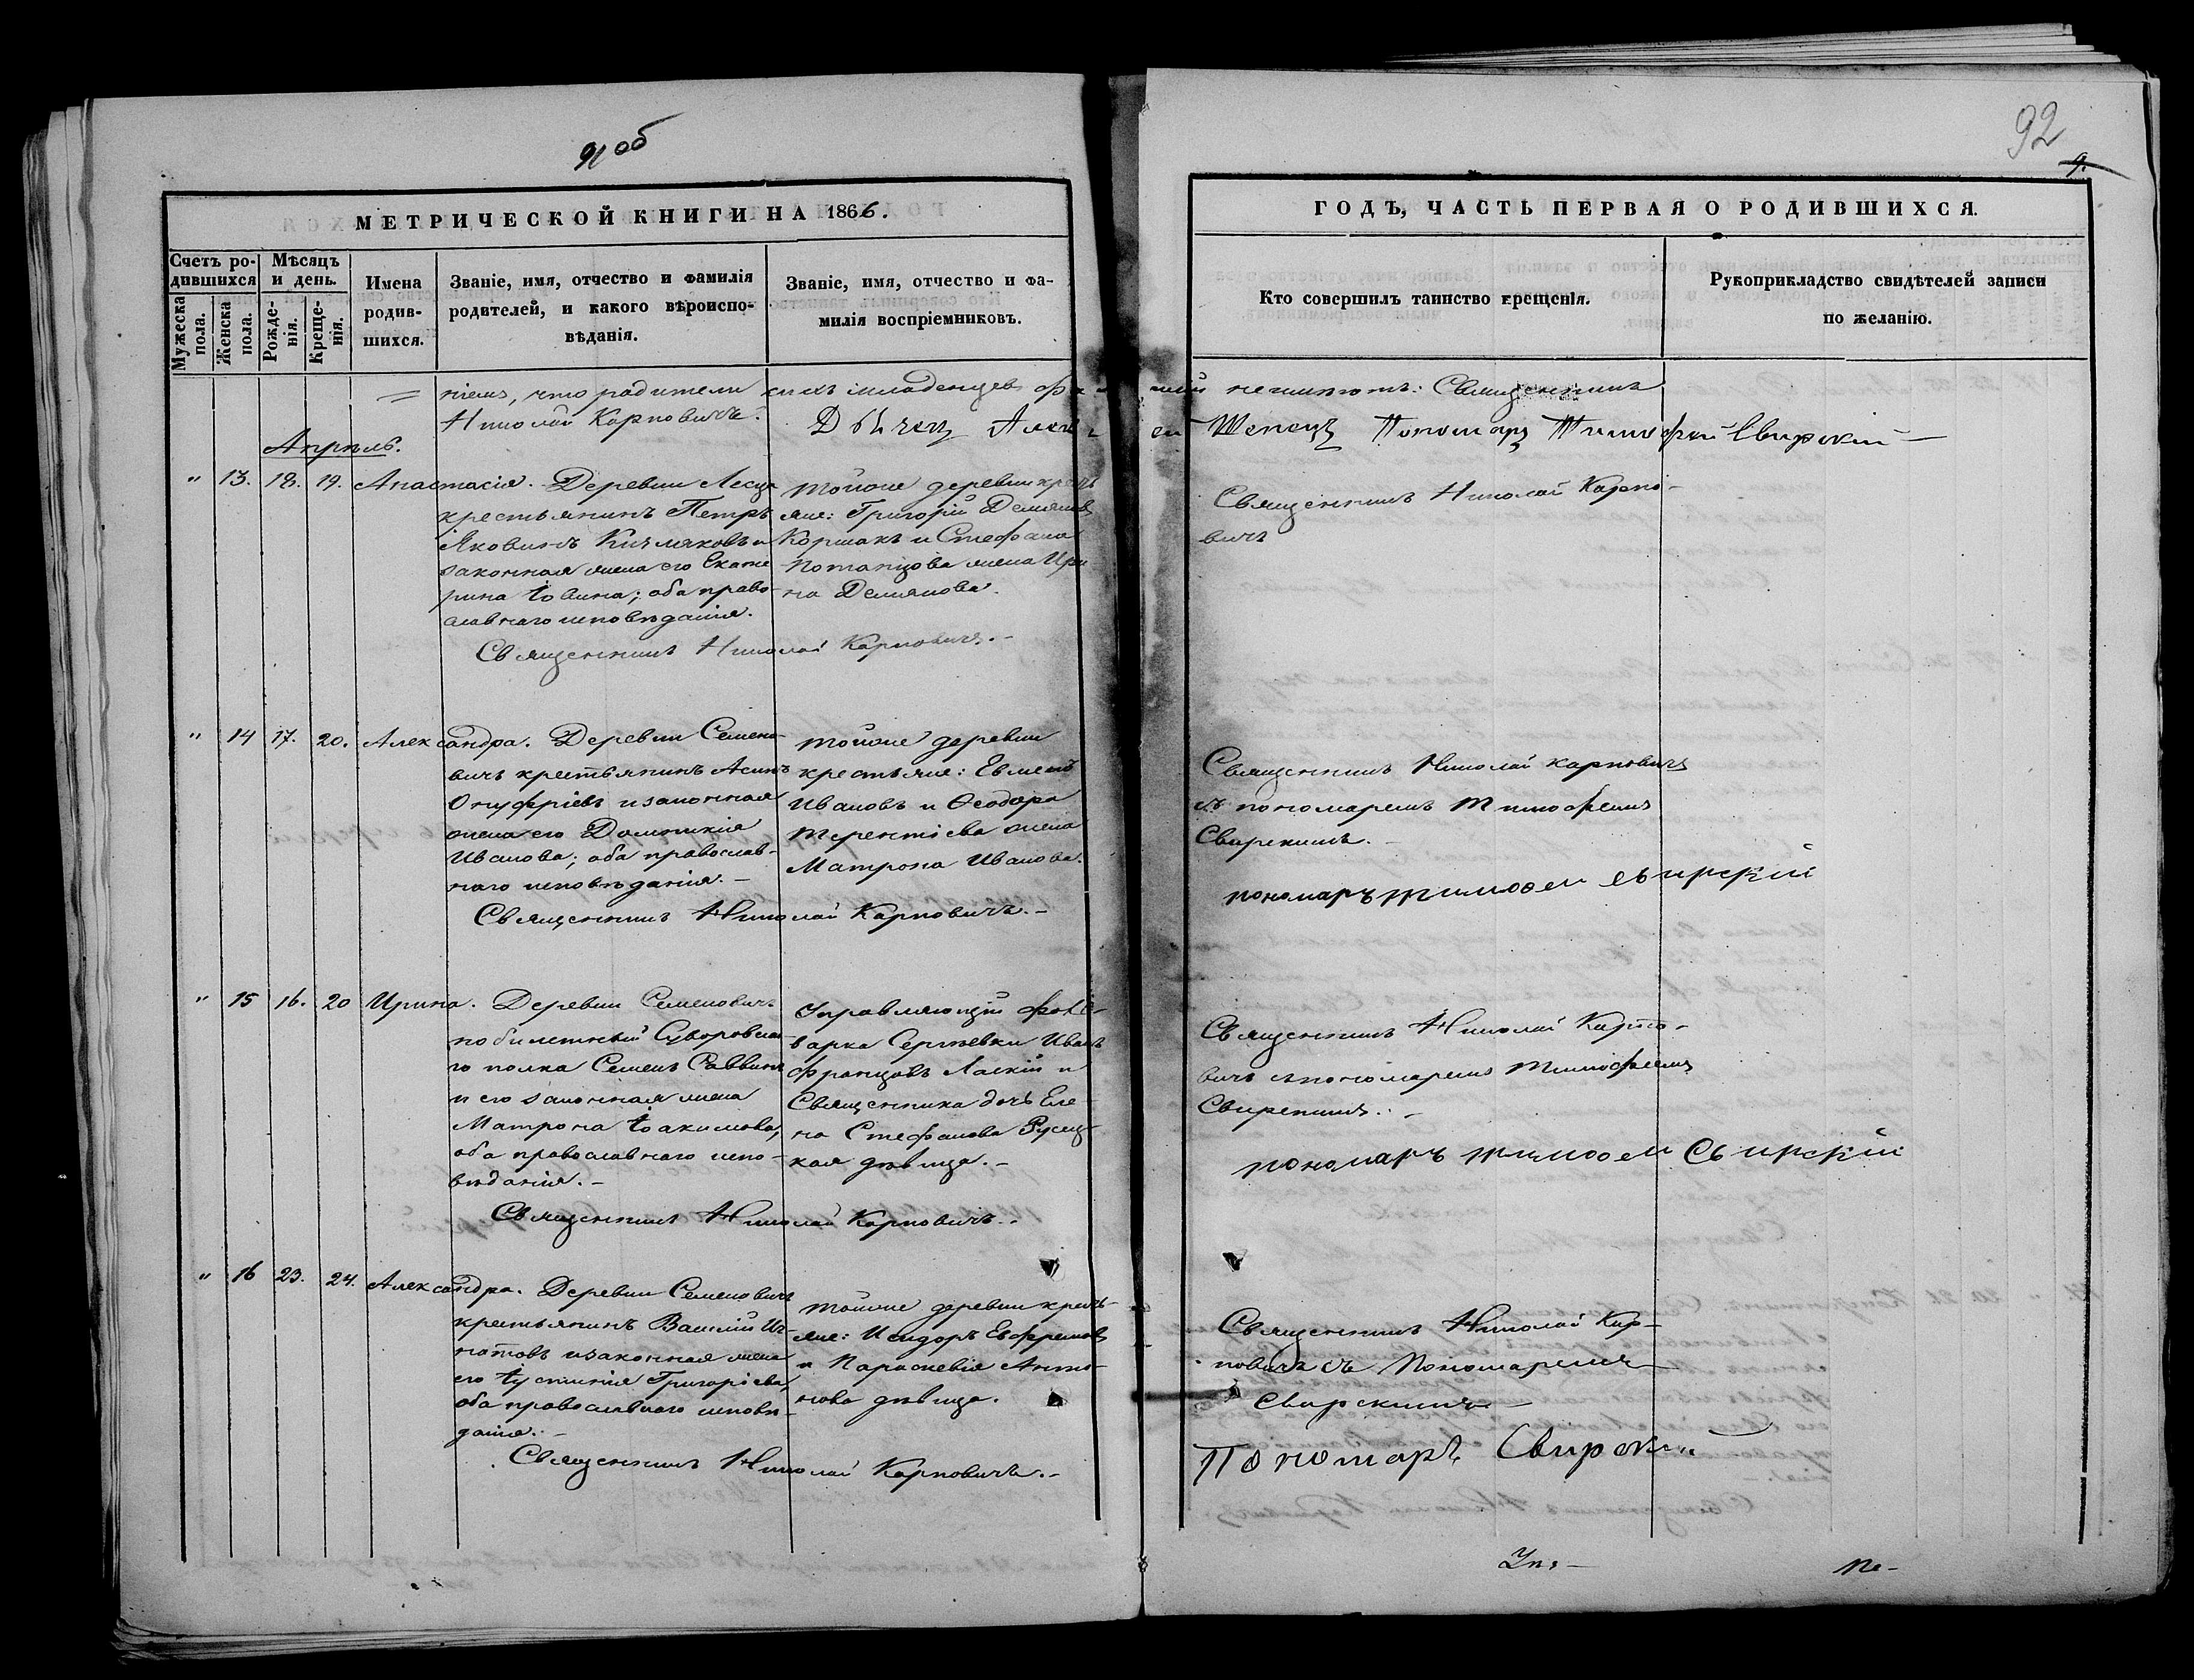 91 об
92
9.
МЕТРИЧЕСКОЙ КНИГИ НА 1866.
ГОДЪ, ЧАСТЬ ПЕРВАЯ О РОДИВШИХСЯ.
Счетъ ро-
дившихся
Мужеска
пола.
Женска
пола.
Мѣсяцъ
и день.
Рожде-
нія.
Креще-
нія.
Имена
родив-
шихся.
Званіе, имя, отчество и фамилія
родителей, и какого вѣроиспо-
вѣданія.
Званіе, имя, отчество и фа-
милія воспріемниковъ.
Кто совершилъ таинство крещенія.
Рукоприкладство свидѣтелей записи
по желанію.
ніемъ, что родители сихъ младенцевъ неимѣютъ: Священникъ
Николай Карповичъ. Дьячецъ Шепецъ Пономарь Тимофей Свирскій
Апрѣль.
" 13. 18. 19. Анастасія.
Деревни Лесца
крестьянинъ Петръ
Яковинъ Кисляковъ и
законная жена его Екате
рина Іовина; оба право-
славнаго исповѣданія.
Священникъ Николай Карповичъ.
тойже деревни кресть
яне: Григорій Деміяновъ
Коршакъ и Стефана
Потапцова жена Ири
на Деміянова.
Священникъ Николай Карпо-
вичъ
" 14 17. 20. Александра.
Деревни Семено-
вичъ крестьянинъ
Онуфріевъ и законная
жена его Домникія
Иванова; оба православ-
наго исповѣданія.
Священникъ Николай Карповичъ.
тойже деревни
крестьяне: Евменъ
Ивановъ и Ѳеодора
Терентіева жена
Матрона Иванова.
Священникъ Николай Карповичъ
съ пономаремъ Тимофеемъ
Свирскимъ.
пономаръ тимофеи свирскій
" 15 16. 20 Ирина.
Деревни Семеновичъ
побилетный Суворовска
го полка Семенъ Саввинъ
и его законная жена
Матрона Іоакимова,
оба православнаго испо-
вѣданія.
Священникъ Николай Карповичъ.
Управляющій фоль-
варка Сергѣевки Иванъ
Францовъ Ласкій и
Священника дочь Еле-
на Стефанова Русец-
кая дѣвица.
Священникъ Николай Карпо-
вичъ съ пономаремъ Тимофеемъ
Свирскимъ.
пономаръ тимофеи Свирскій
" 16 23. 24. Александра.
Деревни Семеновичъ
крестьянинъ Василій Иг-
натовъ и законная жена
его Іустинія Григорьева,
оба православнаго исповѣ-
данія.
Священникъ Николай Карповичъ.
тойже деревни кресть-
яне: Исидоръ Евфремовъ
и Параскевія Анто-
нова дѣвица.
Священникъ Николай Кар-
повичъ съ Пономаремъ
Свирскимъ
Пономарь Свирскій